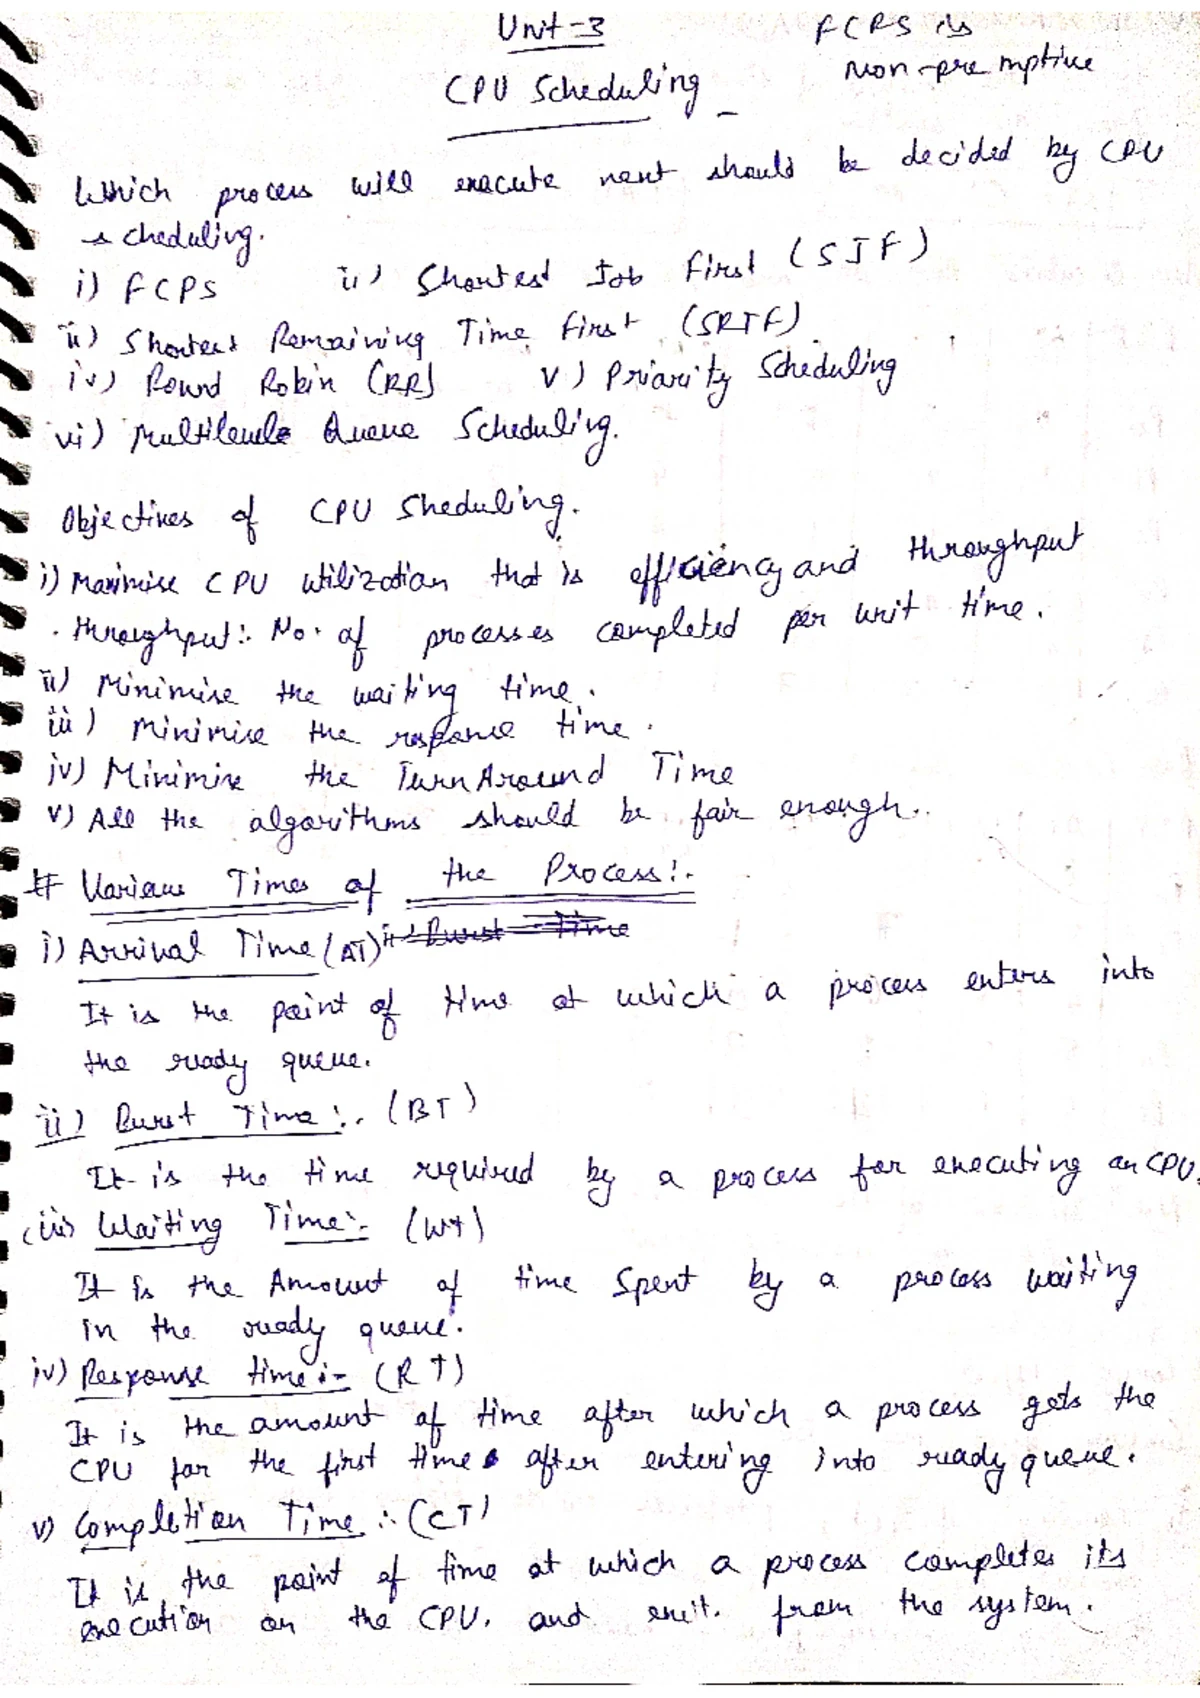 Unit-3
FCPS is
Non-premptive
CPU Scheduling
Which process will execute next should be decided by CPU
scheduling.
i) FCPS ii) Shortest Job First (SJF)
ii) Shortest Remaining Time First (SRTF)
iv) Round Robin (RR) v) Priority Scheduling
vi) Multilevel Queue Scheduling.
Objectives of CPU Sheduling.
i) Maximise CPU utilization that is efficiency and throughput
. throughput:- No. of processes completed per unit time.
ii) Minimise the waiting time.
iii) Minimise the response time.
iv) Minimise the Turn Around Time
v) All the algorithms should be fair enough..
# Various Times of the Process:-
i) Arrival Time (AT) ii) Burst Time
It is the point of time at which a process enters into
the ready queue.
ii) Burst Time:- (BT)
It is the time required by a process for executing on CPU.
(iii) Waiting Time:- (WT)
It is the Amount of time Spent by a process waiting
in the ready queue.
iv) Response time:- (RT)
It is the amount of time after which a process gets the
CPU for the first time after entering into ready queue.
v) Completion Time :- (CT)
It is the point of time at which a process completes its
execution on the CPU. and exit. from the system.